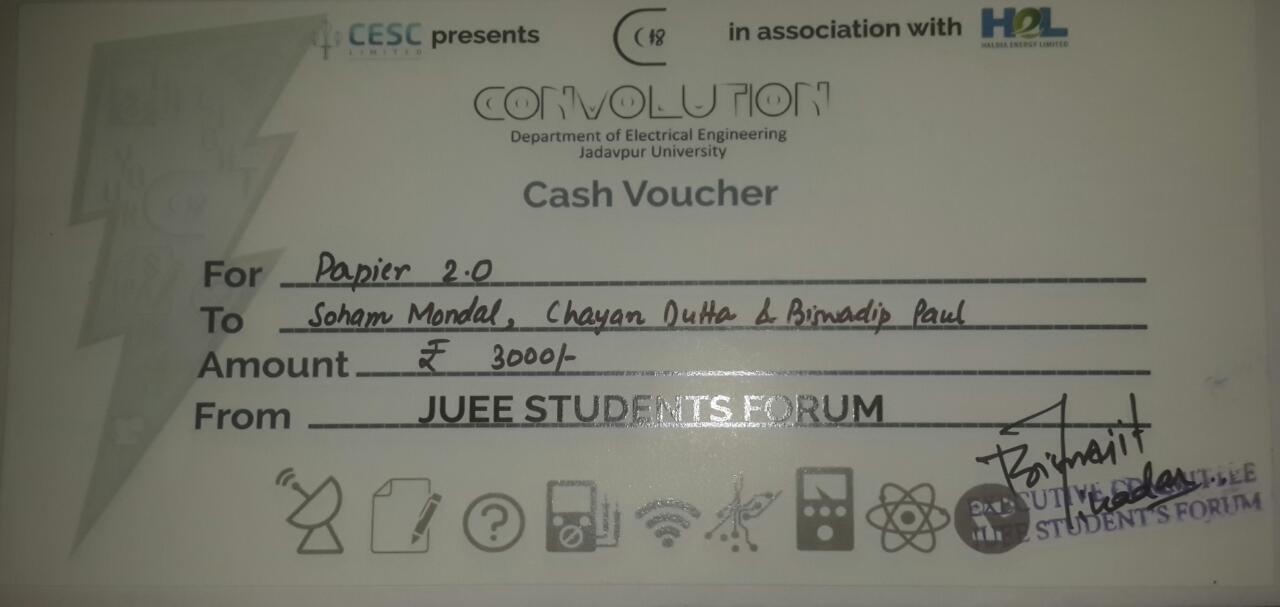 CESC LIMITED presents C18 in association with HEL HALDIA ENERGY LIMITED
CONVOLUTION
Department of Electrical Engineering
Jadavpur University
Cash Voucher
For Papier 2.0
To Soham Mondal, Chayan Dutta & Bismadip Paul
Amount ₹ 3000/-
From JUEE STUDENTS FORUM
EXECUTIVE COMMITTEE
JUEE STUDENT'S FORUM